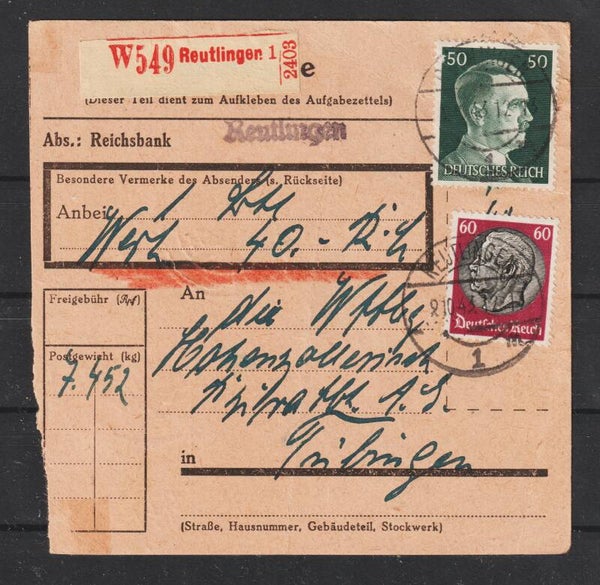 W549 Reutlingen 1 2403
e
(Dieser Teil dient zum Aufkleben des Aufgabezettels)
Abs.: Reichsbank Reutlingen
50 50
DEUTSCHES REICH
Besondere Vermerke des Absenders (s. Rückseite)
Anbei 1
Wert 40.-
60 60
REUTLINGEN
Deutsches Reich
1
Freigebühr (Rpf)
Postgewicht (kg)
7.452
An
die
in Tübingen
(Straße, Hausnummer, Gebäudeteil, Stockwerk)